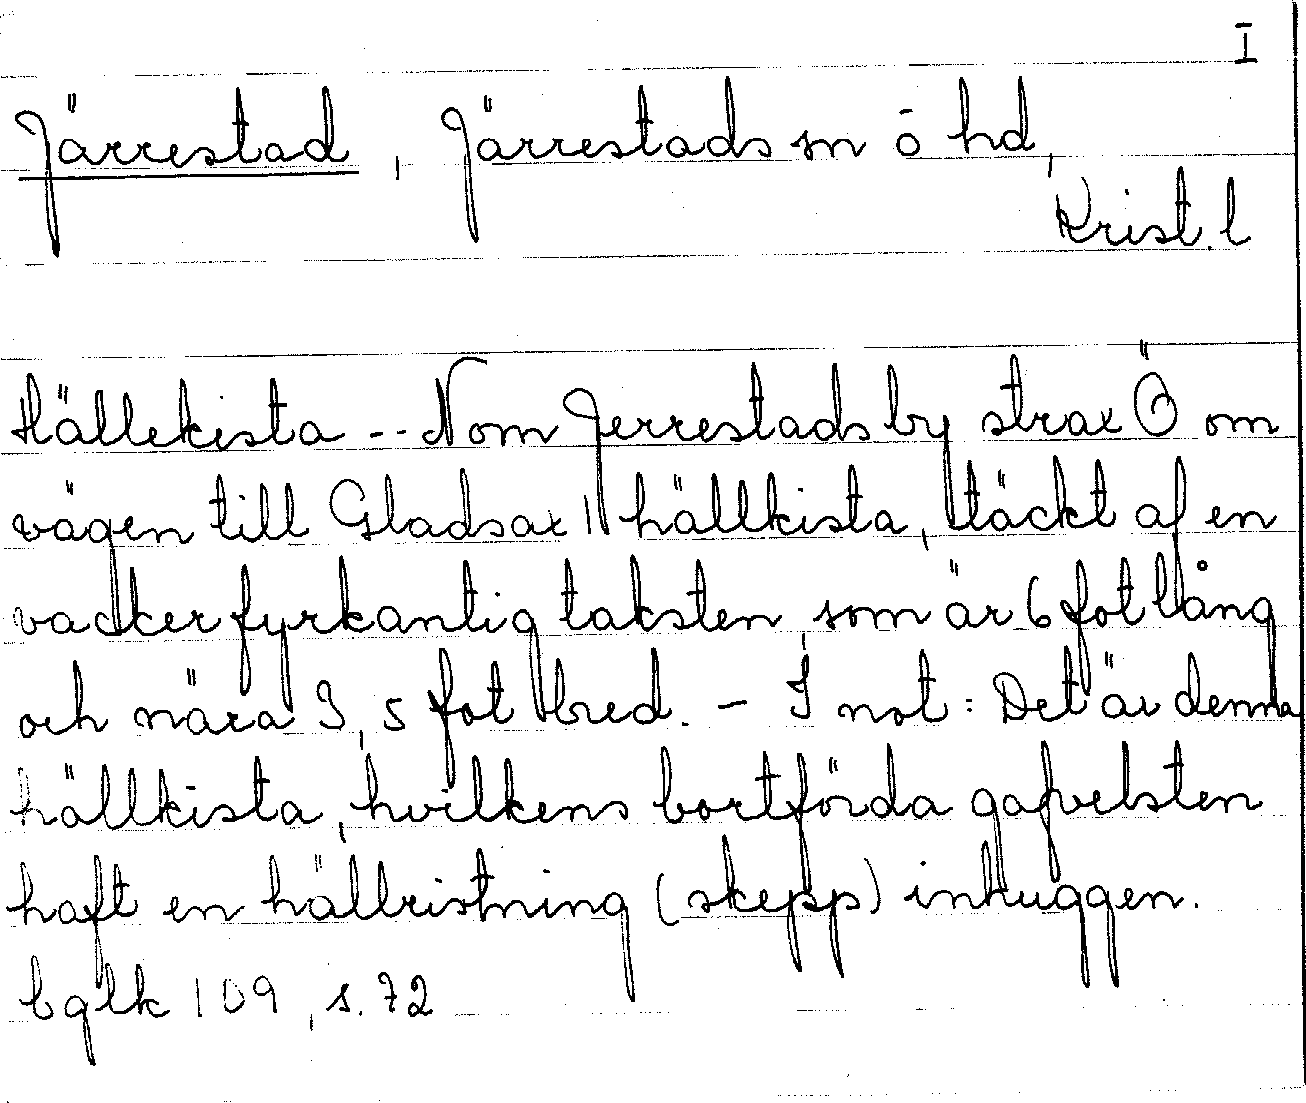 I
Järrestad, Järrestads sn o hd,
Krist. l
Hällekista -- N om Jerrestads by strax Ö om
vägen till Gladsax 1 hällkista, täckt af en
vacker fyrkantig taksten som är 6 fot lång
och nära 3,5 fot bred. - I not: Det är denna
hällkista, hvilkens bortförda gafvelsten
haft en hällristning (skepp) inhuggen.
bglk 109, s. 72